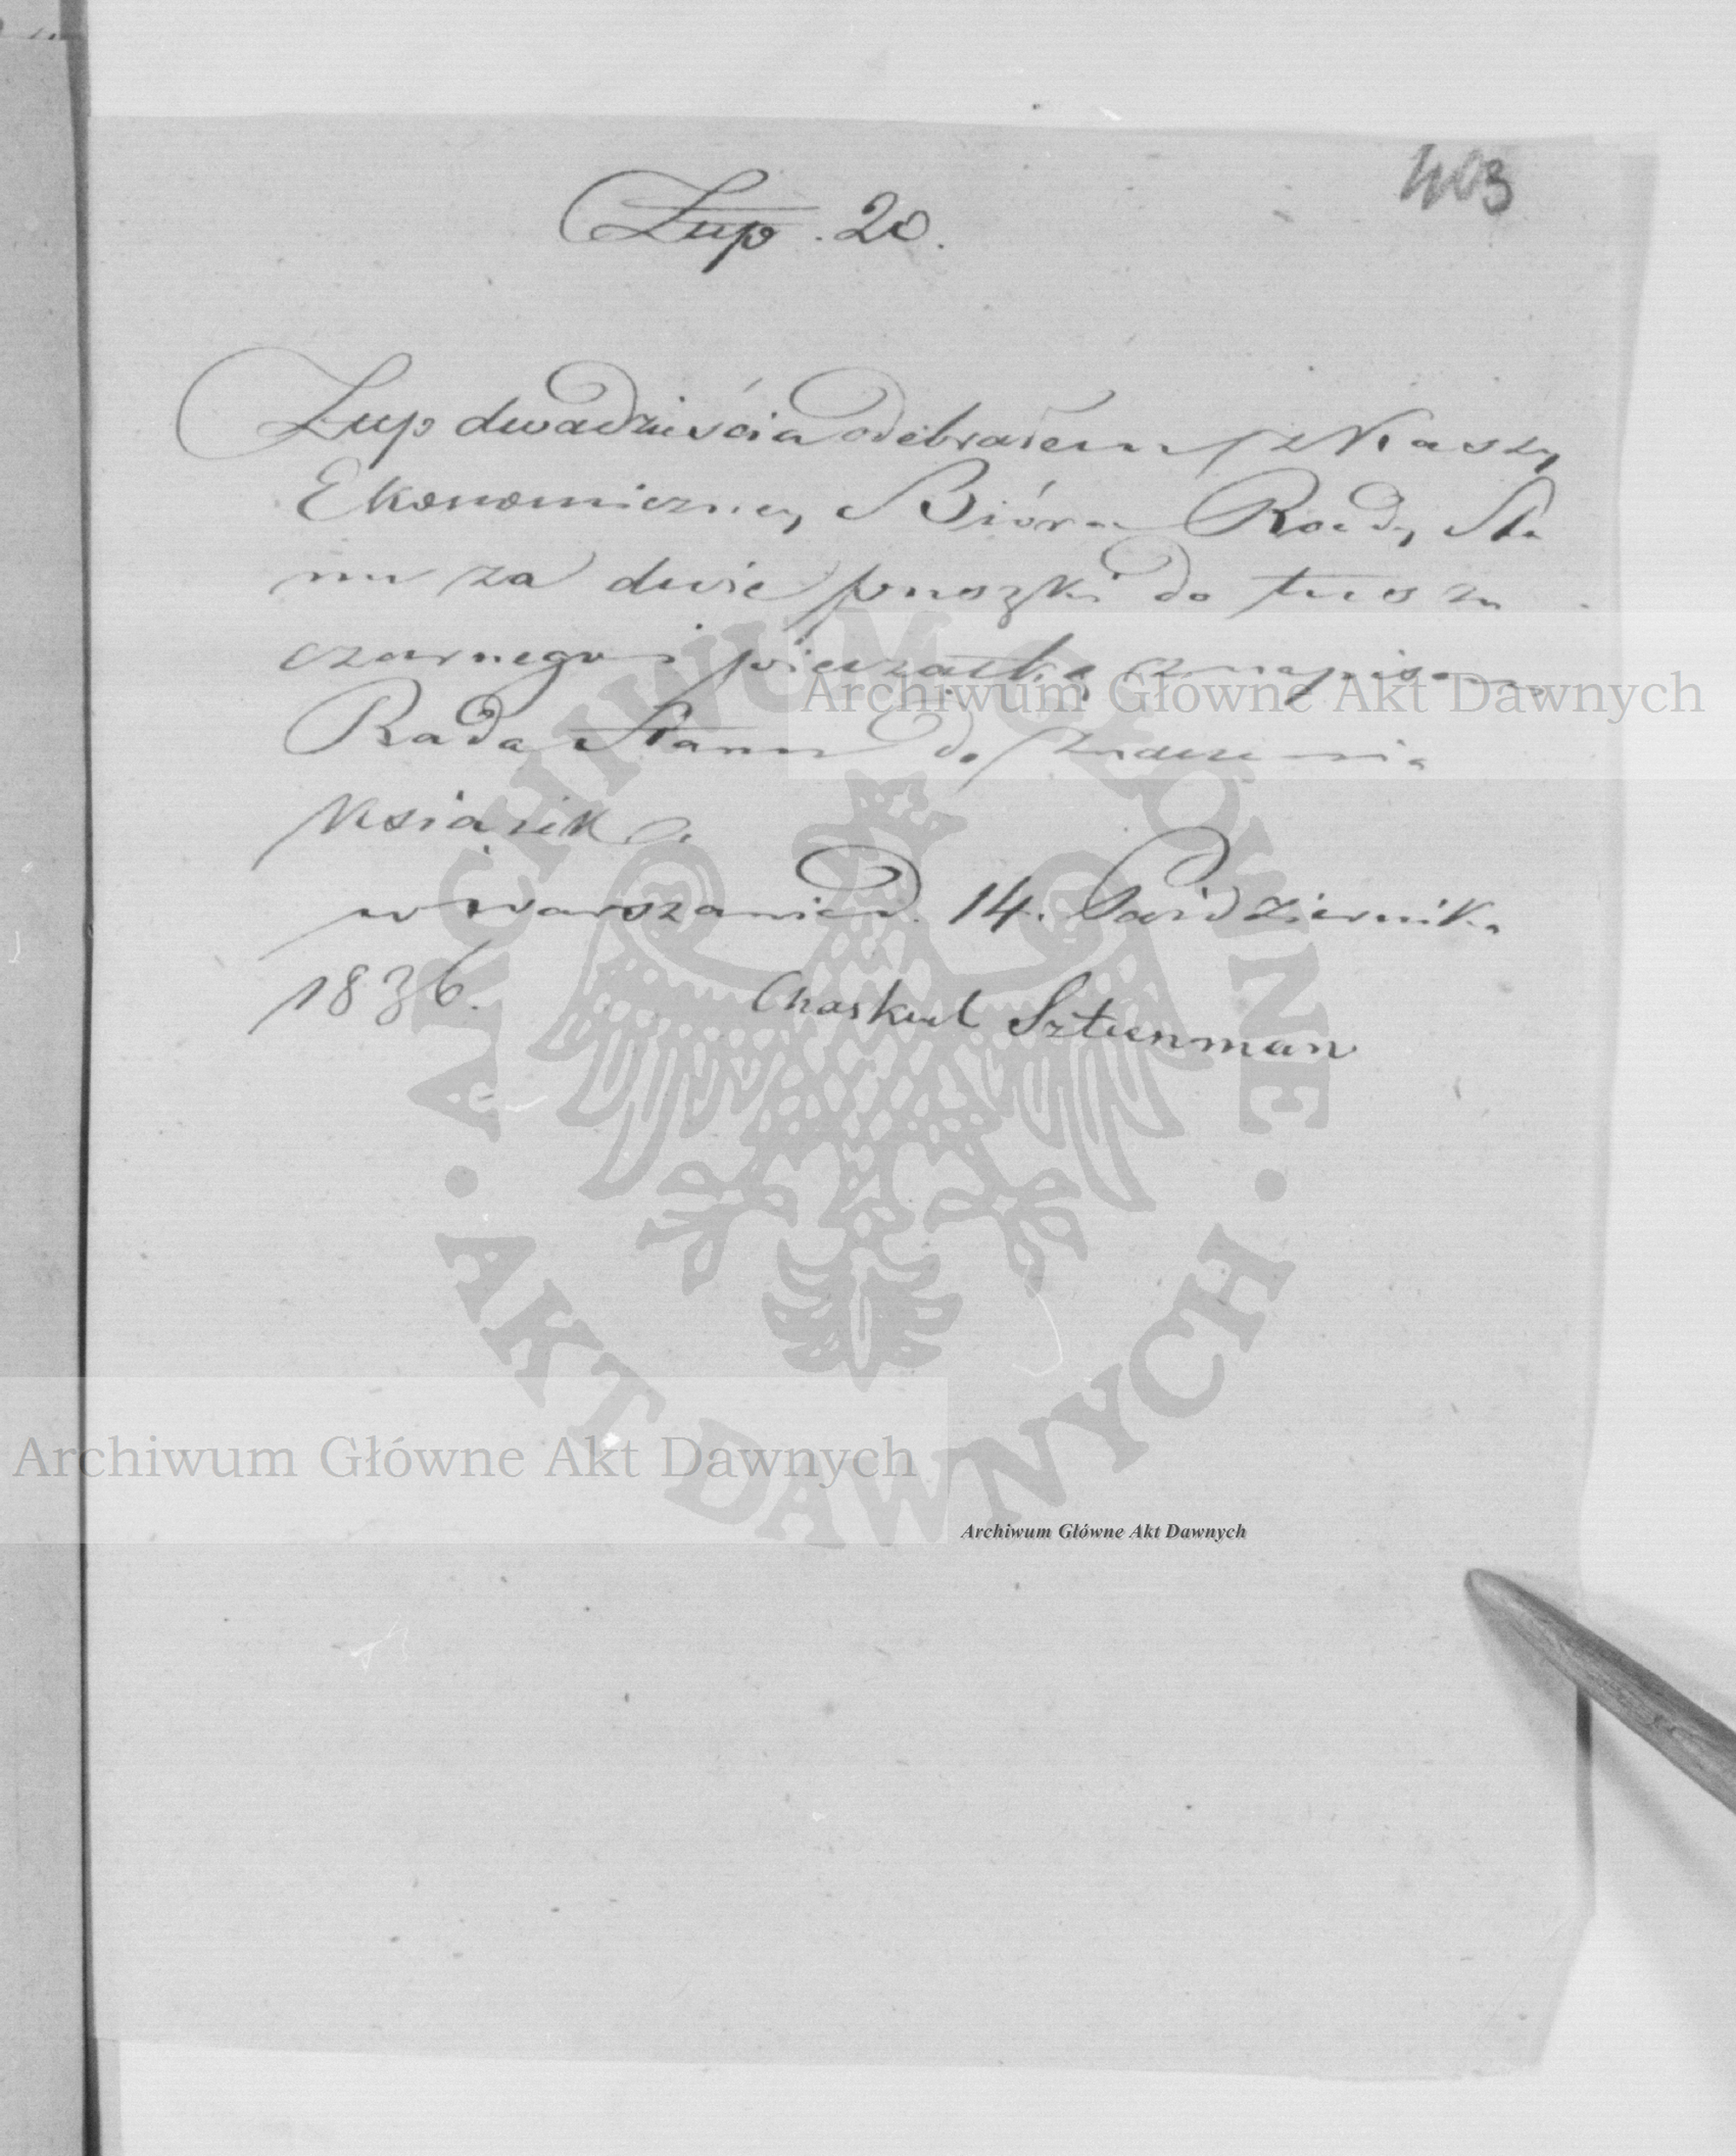 403
Zup. 20.
Zup dwadzieścia odebrałem z Kassy
Ekonomiczney Bióra Rady Sta
nu za dwie puszki do tuszu
czarnego i pieczątkę z napisem
Rada Stanu do znaczenia
Książek.
w Warszawie d. 14. Października
1836.
Chaskiel Sztunman
ARCHIWUM GŁÓWNE
• AKT DAWNYCH •
Archiwum Główne Akt Dawnych
Archiwum Główne Akt Dawnych
Archiwum Główne Akt Dawnych